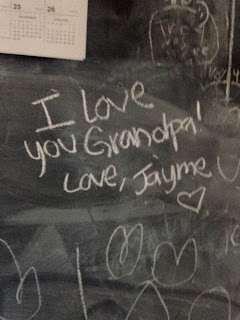 25
26
I love
you Grandpa!
Love, Jayme